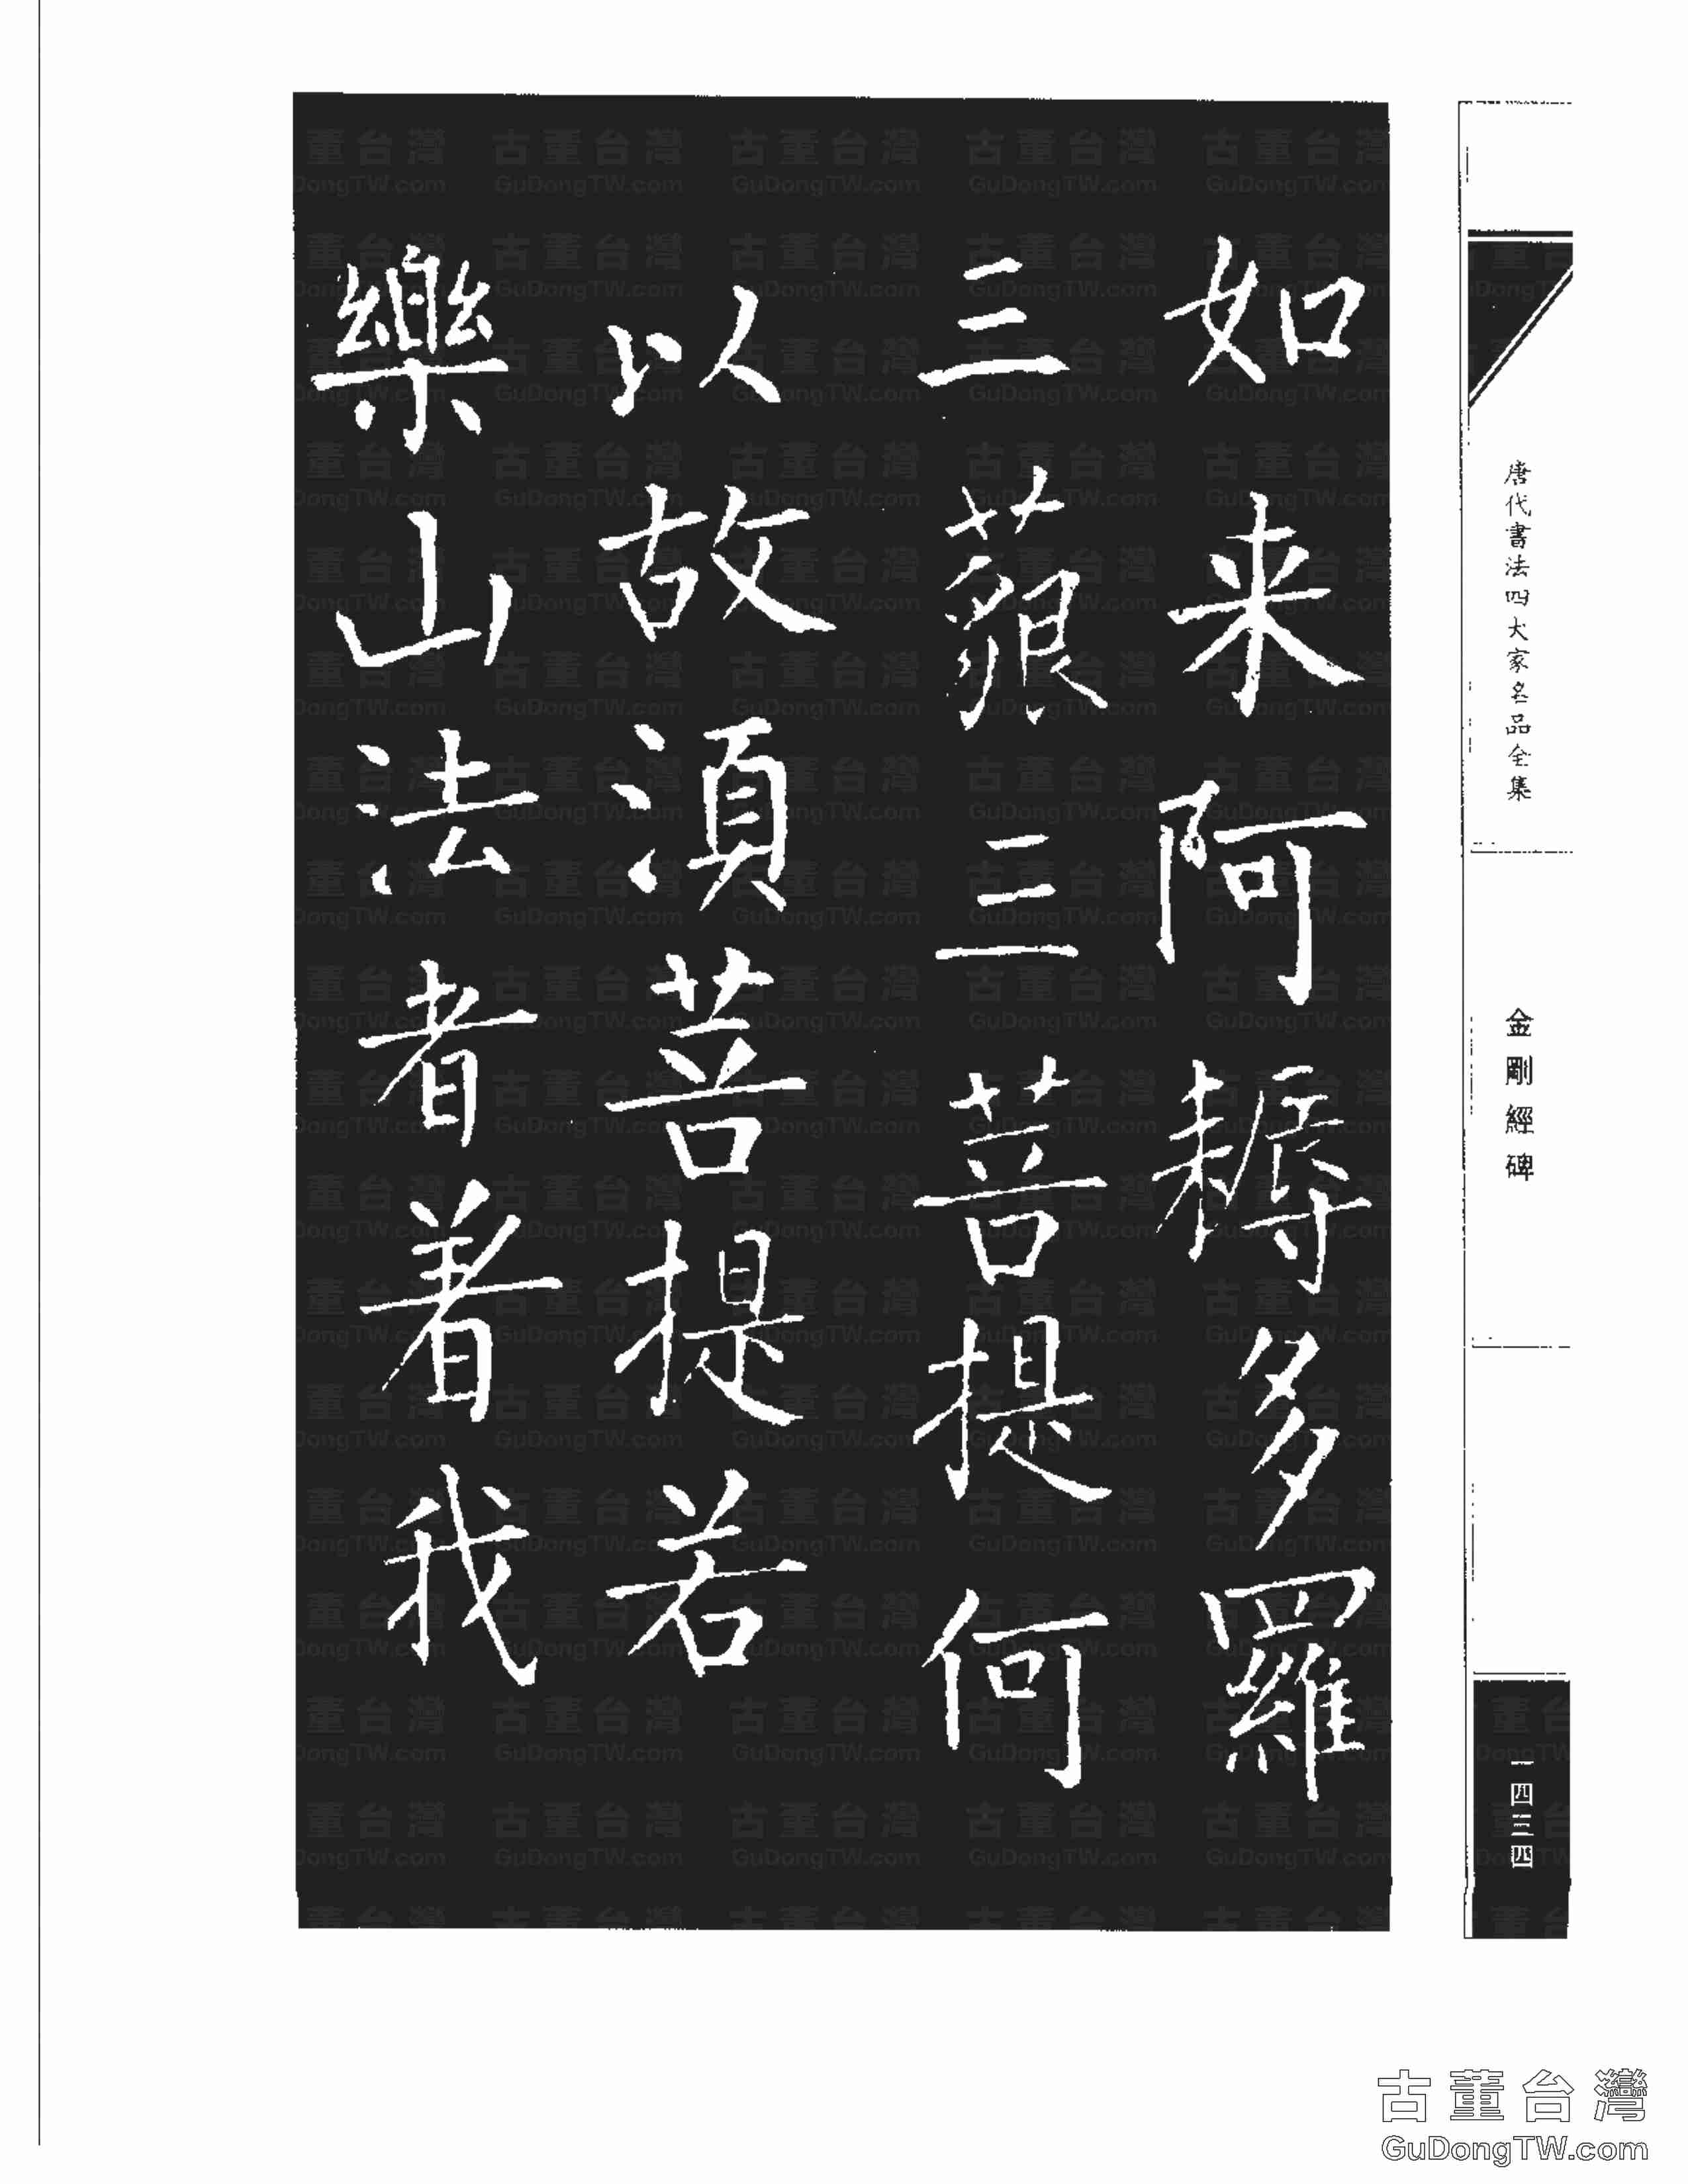 唐代書法四大家名品全集
金剛經碑
一四三四
如来阿耨多羅
三藐三菩提何
以故湏菩提若
樂山法者着我
古董台灣
GuDongTW.com